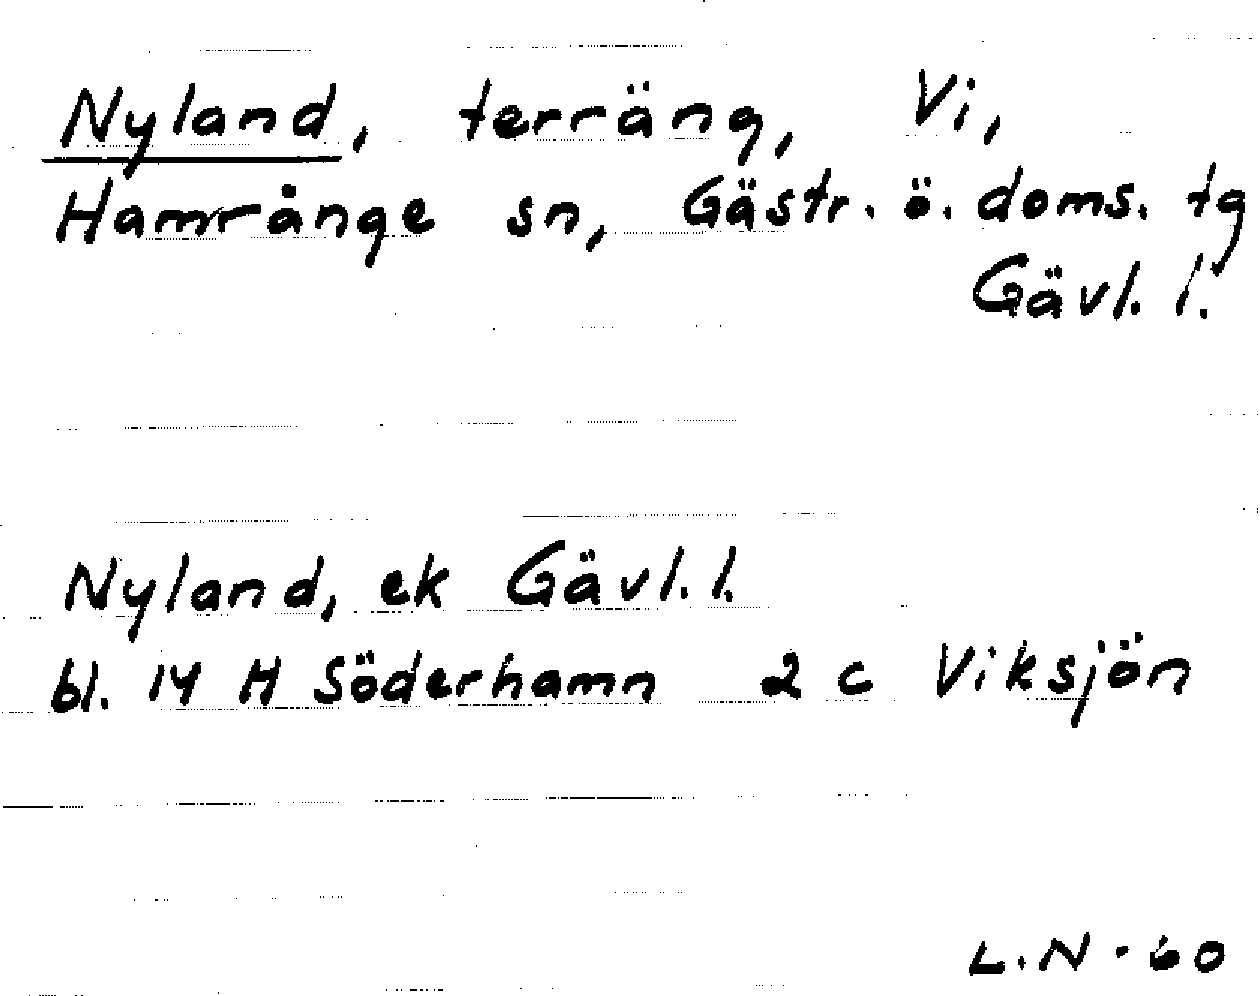 Nyland, terräng, Vi,
Hamrånge sn, Gästr. ö. doms. tg
Gävl. l.
Nyland, ek Gävl. l.
bl. 14 H Söderhamn 2 c Viksjön
L.N - 60